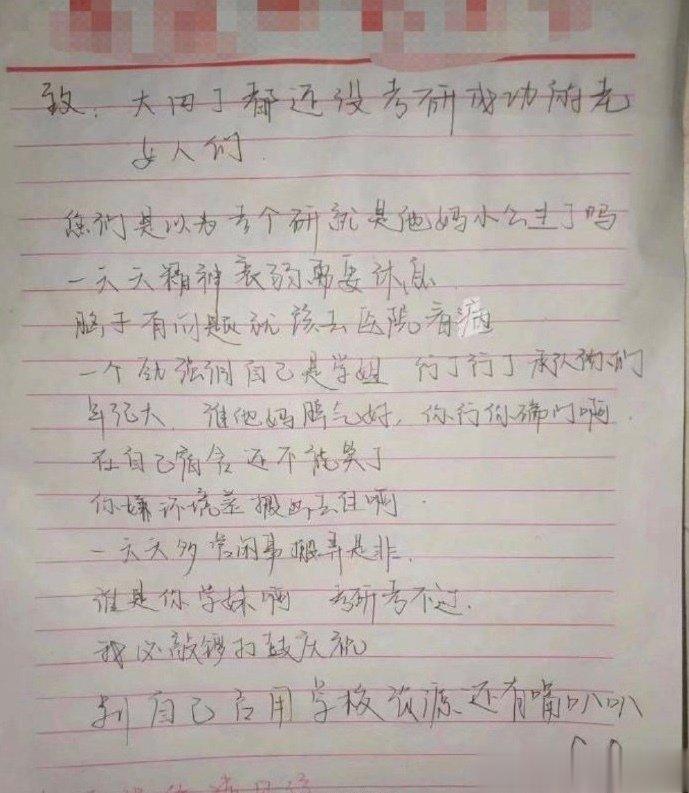 致：大四了都还没考研成功的老
女人们
您们是以为考个研就是他妈小公主了吗
一天天精神衰弱需要休息
脑子有问题就该去医院看病
一个劲强调自己是学姐 行了行了承认你们
年纪大．谁他妈脾气好，你行你踹门啊．
在自己宿舍还不能笑了
你嫌环境差搬出去住啊．
一天天多管闲事搬弄是非．
谁是你学妹啊 考研考不过．
我必敲锣打鼓庆祝
别自己占用学校资源还有嘴叭叭